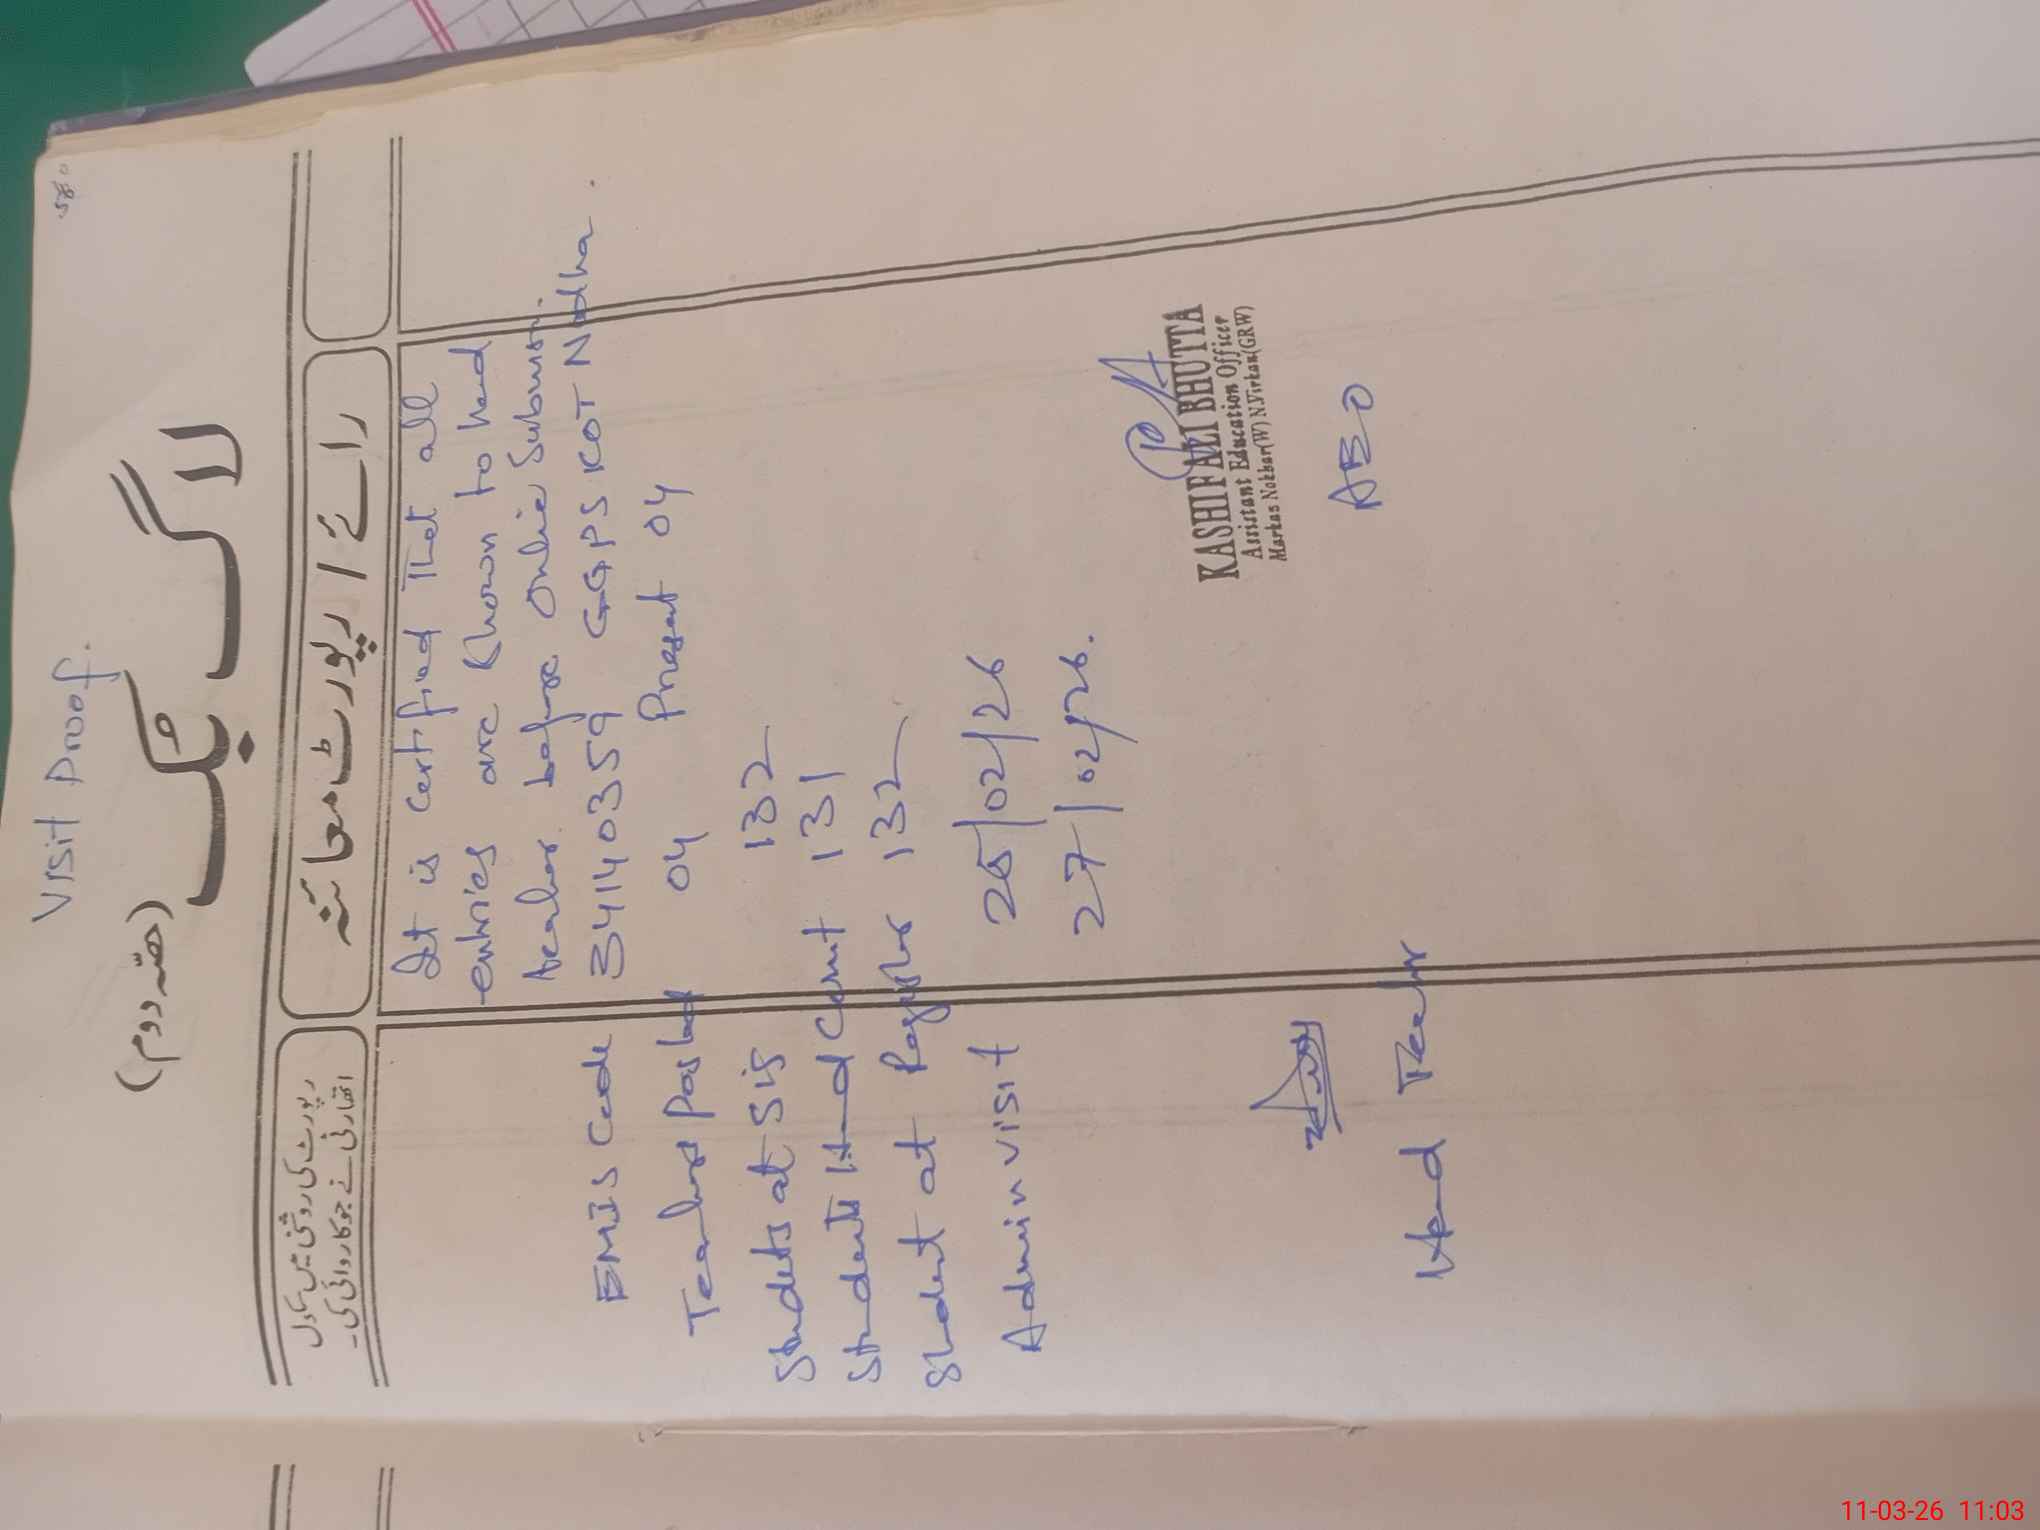 Visit Proof.
لاگ بک
(حصّہ دوم)
رائے / رپورٹ معائنہ
رپورٹ کی روشنی میں سکول
اتھارٹی نے جو کاروائی کی۔
It is certified that all
entries are shown to head
teacher before Online Submission.
EMIS Code 34140359 GGPS KOT Nodha.
Teacher Posted 04 Present 04
Students at Sis 132
Students Head Count 131
Student at Register 132
Admin visit 25/02/26
27/02/26.
KASHIF ALI BHUTTA
Assistant Education Officer
Markas Nokhar(W) N.Virkan(GRW)
AEO
Head Teacher
11-03-26 11:03